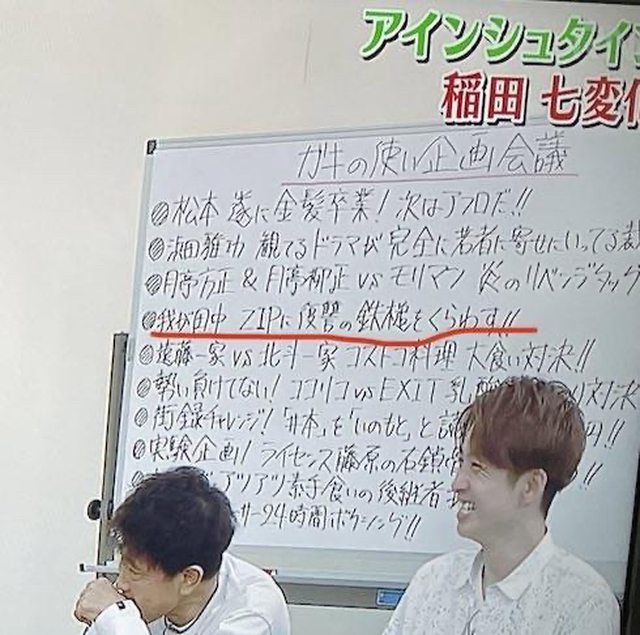 アインシュタイン
稲田 七変化
ガキの使い企画会議
松本 遂に金髪卒業!次はアフロだ!!
浜田雅功 観てるドラマが完全に若者に寄せにいってる裁
月亭方正&月亭柳正vsモリマン 炎のリベンジタッグ
我が田中 ZIPに復讐の鉄槌をくらわす!!
遠藤一家vs北斗一家 コストコ料理 大食い対決!!
勢い負けてない! ココリコvsEXIT 乳 対決
街録チャレンジ!「井本」を「いのもと」と
実験企画! ライセンス藤原の右鎖
アツアツ素手食いの後継者
24時間ボクシング!!